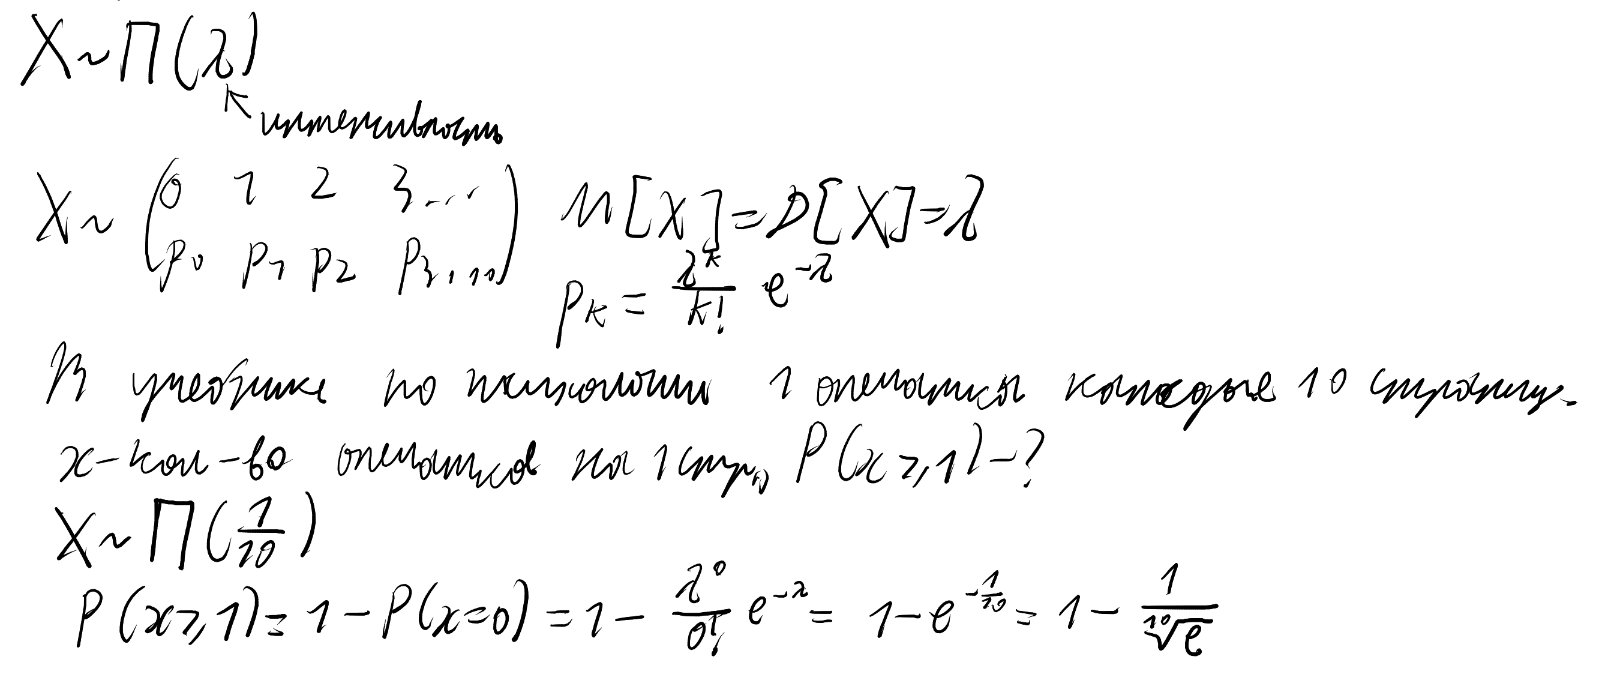 X ~ П(λ)
интенсивность
X ~ (0 1 2 3... / p₀ p₁ p₂ p₃, ...) M[X] = D[X] = λ
pₖ = λᵏ/k! e^(-λ)
В учебнике по психологии 1 опечатка каждые 10 страниц.
x - кол-во опечаток на 1 стр, P(x ≥ 1) - ?
X ~ П(1/10)
P(x ≥ 1) = 1 - P(x=0) = 1 - λ⁰/0! e^(-λ) = 1 - e^(-1/10) = 1 - 1/¹⁰√e